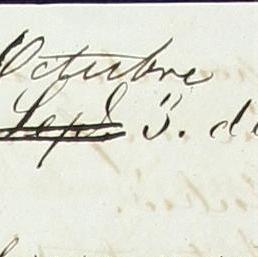 Octubre
Sep. 3. de